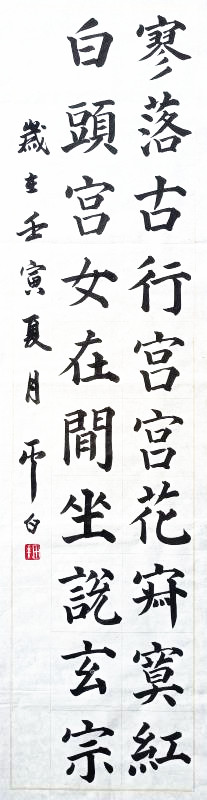 寥落古行宮宮花寂寞紅
白頭宮女在間坐說玄宗
歲在壬寅夏月